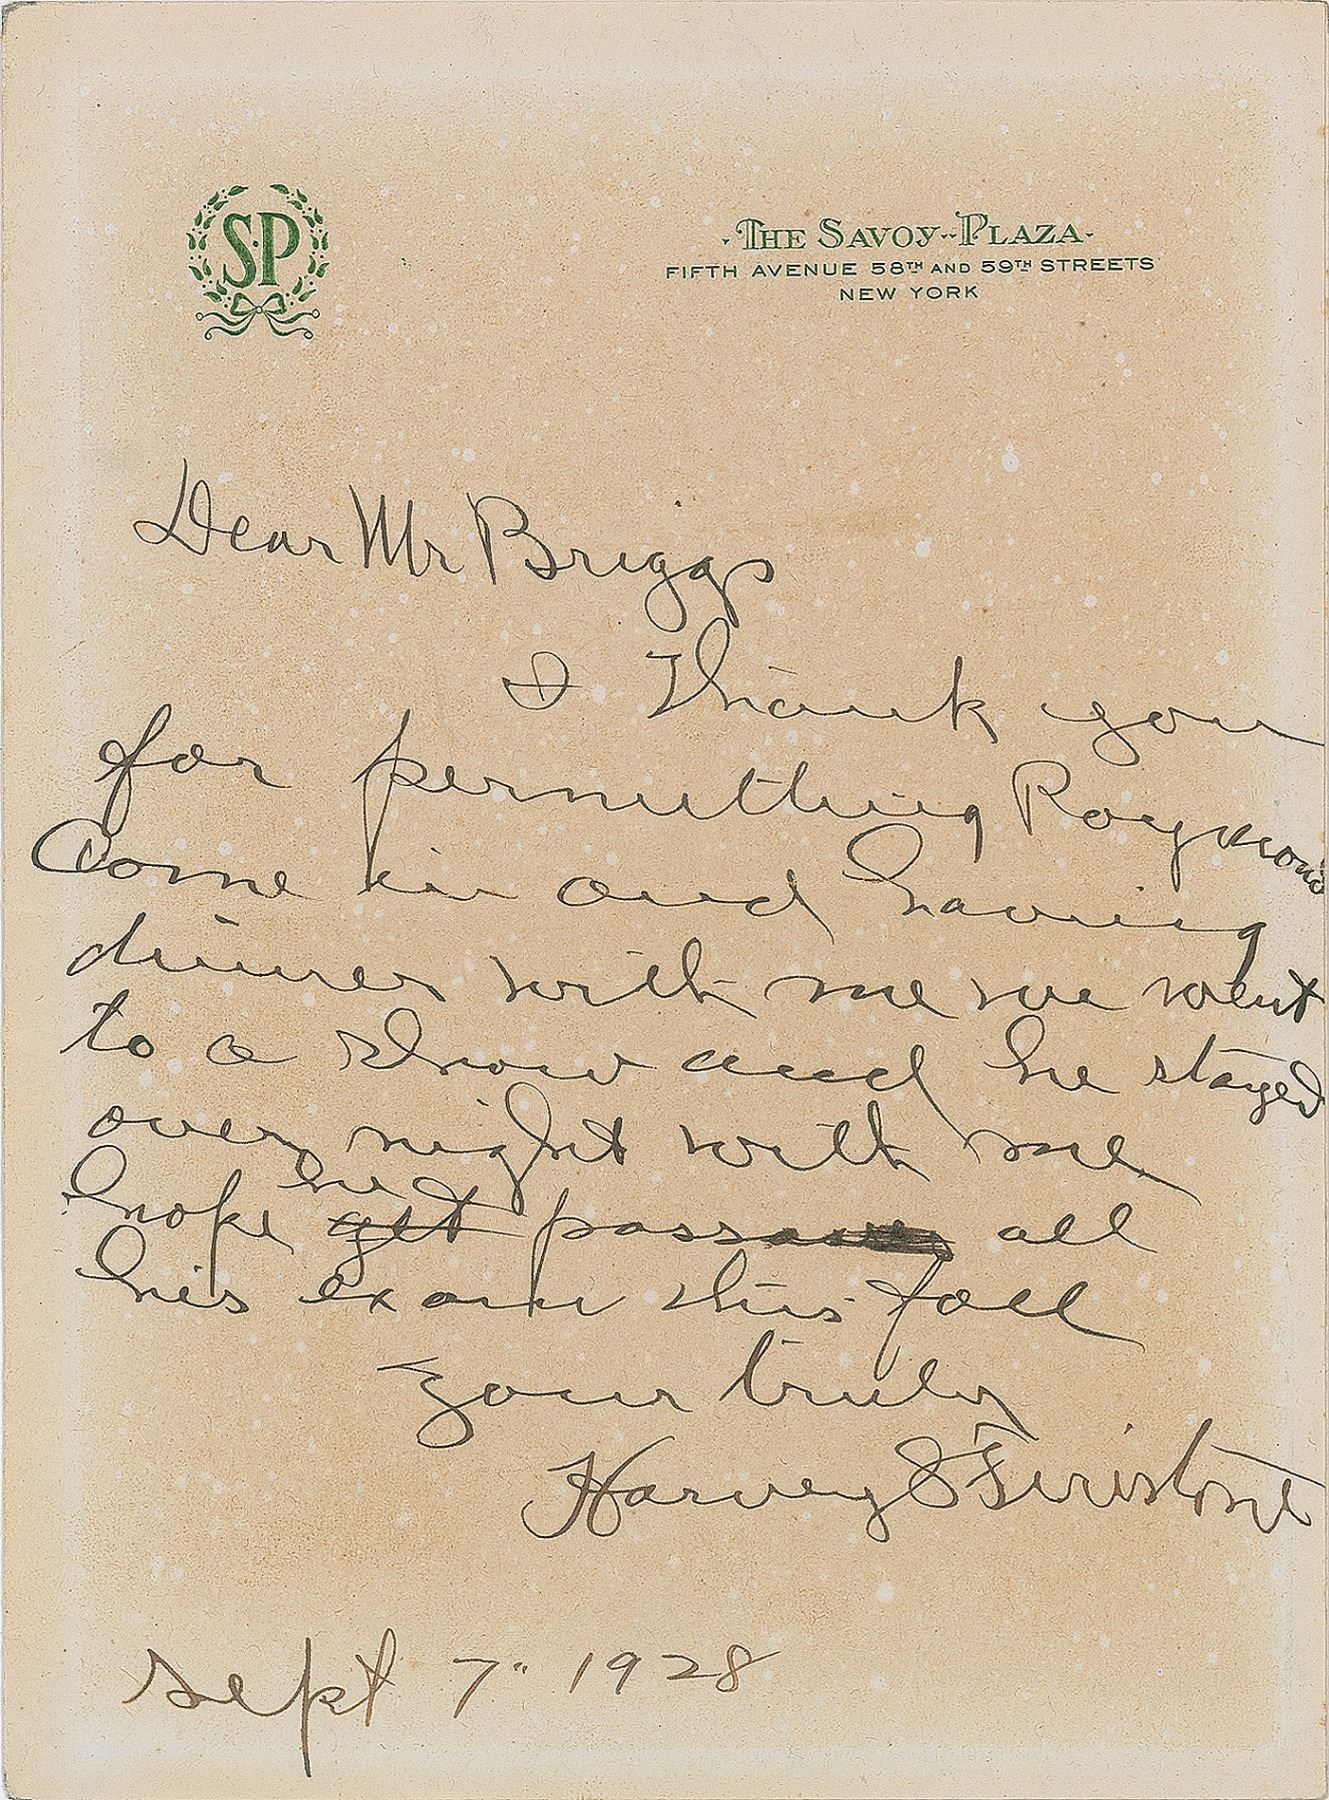 SP
THE SAVOY-PLAZA
FIFTH AVENUE 58TH AND 59TH STREETS
NEW YORK
Dear Mr Briggs
I Thank you
for permitting Raymond
Come in and having
dinner with me we went
to a show and he stayed
over night with me
hope he get pass all
his exam this fall
your truly
Harvey S Firestone
Sept 7" 1928